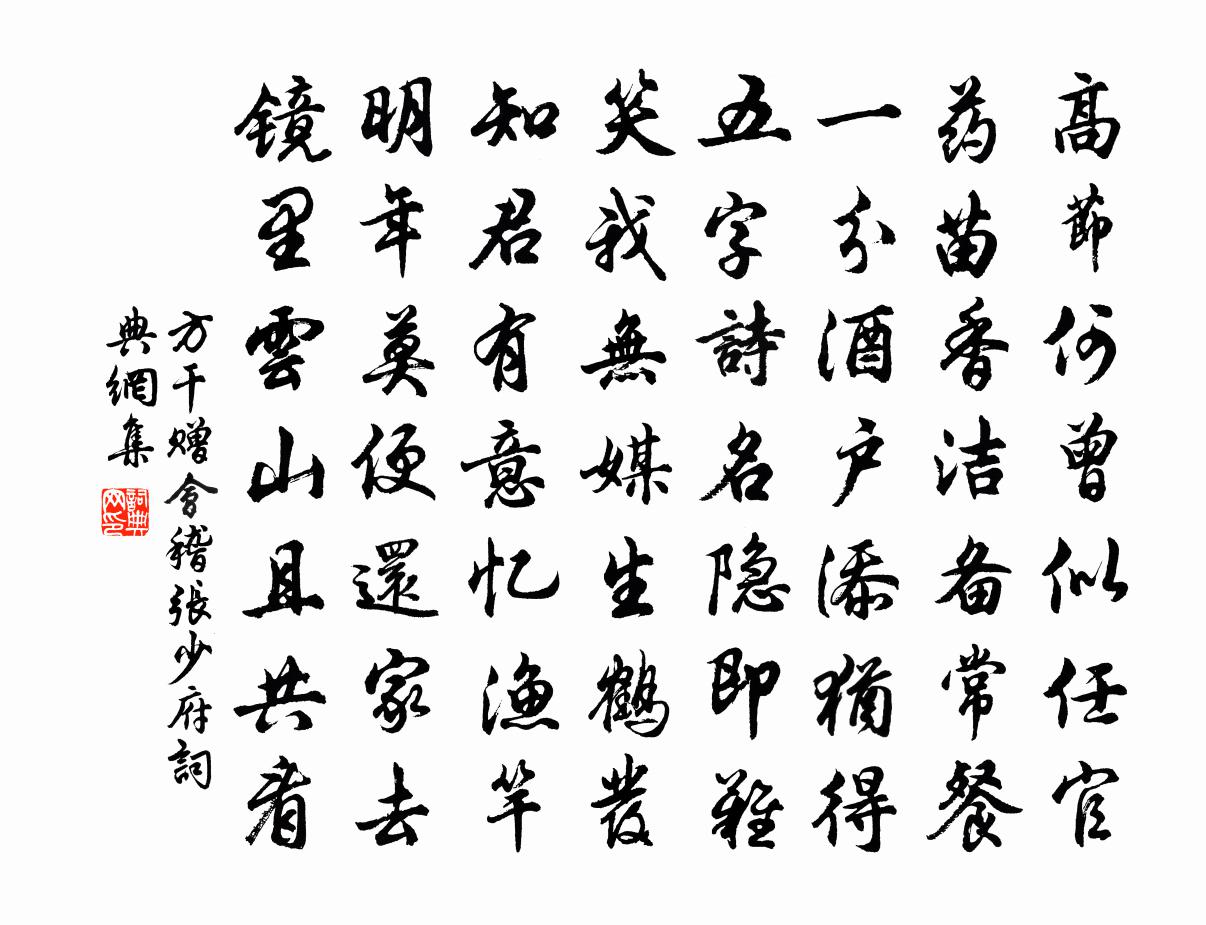 高節何曾似任官
药苗香洁备常餐
一分酒户添猶得
五字詩名隐即難
笑我無媒生鹤發
知君有意忆渔竿
明年莫便還家去
镜里雲山且共看
方干赠會稽張少府詞
典網集
詞典网印